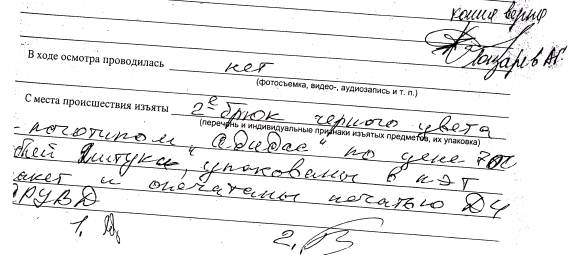 копия верна
В ходе осмотра проводилась нет
(фотосъемка, видео-, аудиозапись и т. п.)
С места происшествия изъяты 2е брюк черного цвета
(перечень и индивидуальные признаки изъятых предметов, их упаковка)
логотипом "Адидас" по цене 700
штука, упакованы в пэт
пакет и опечатаны печатью ДЧ
РУВД
1.
2.